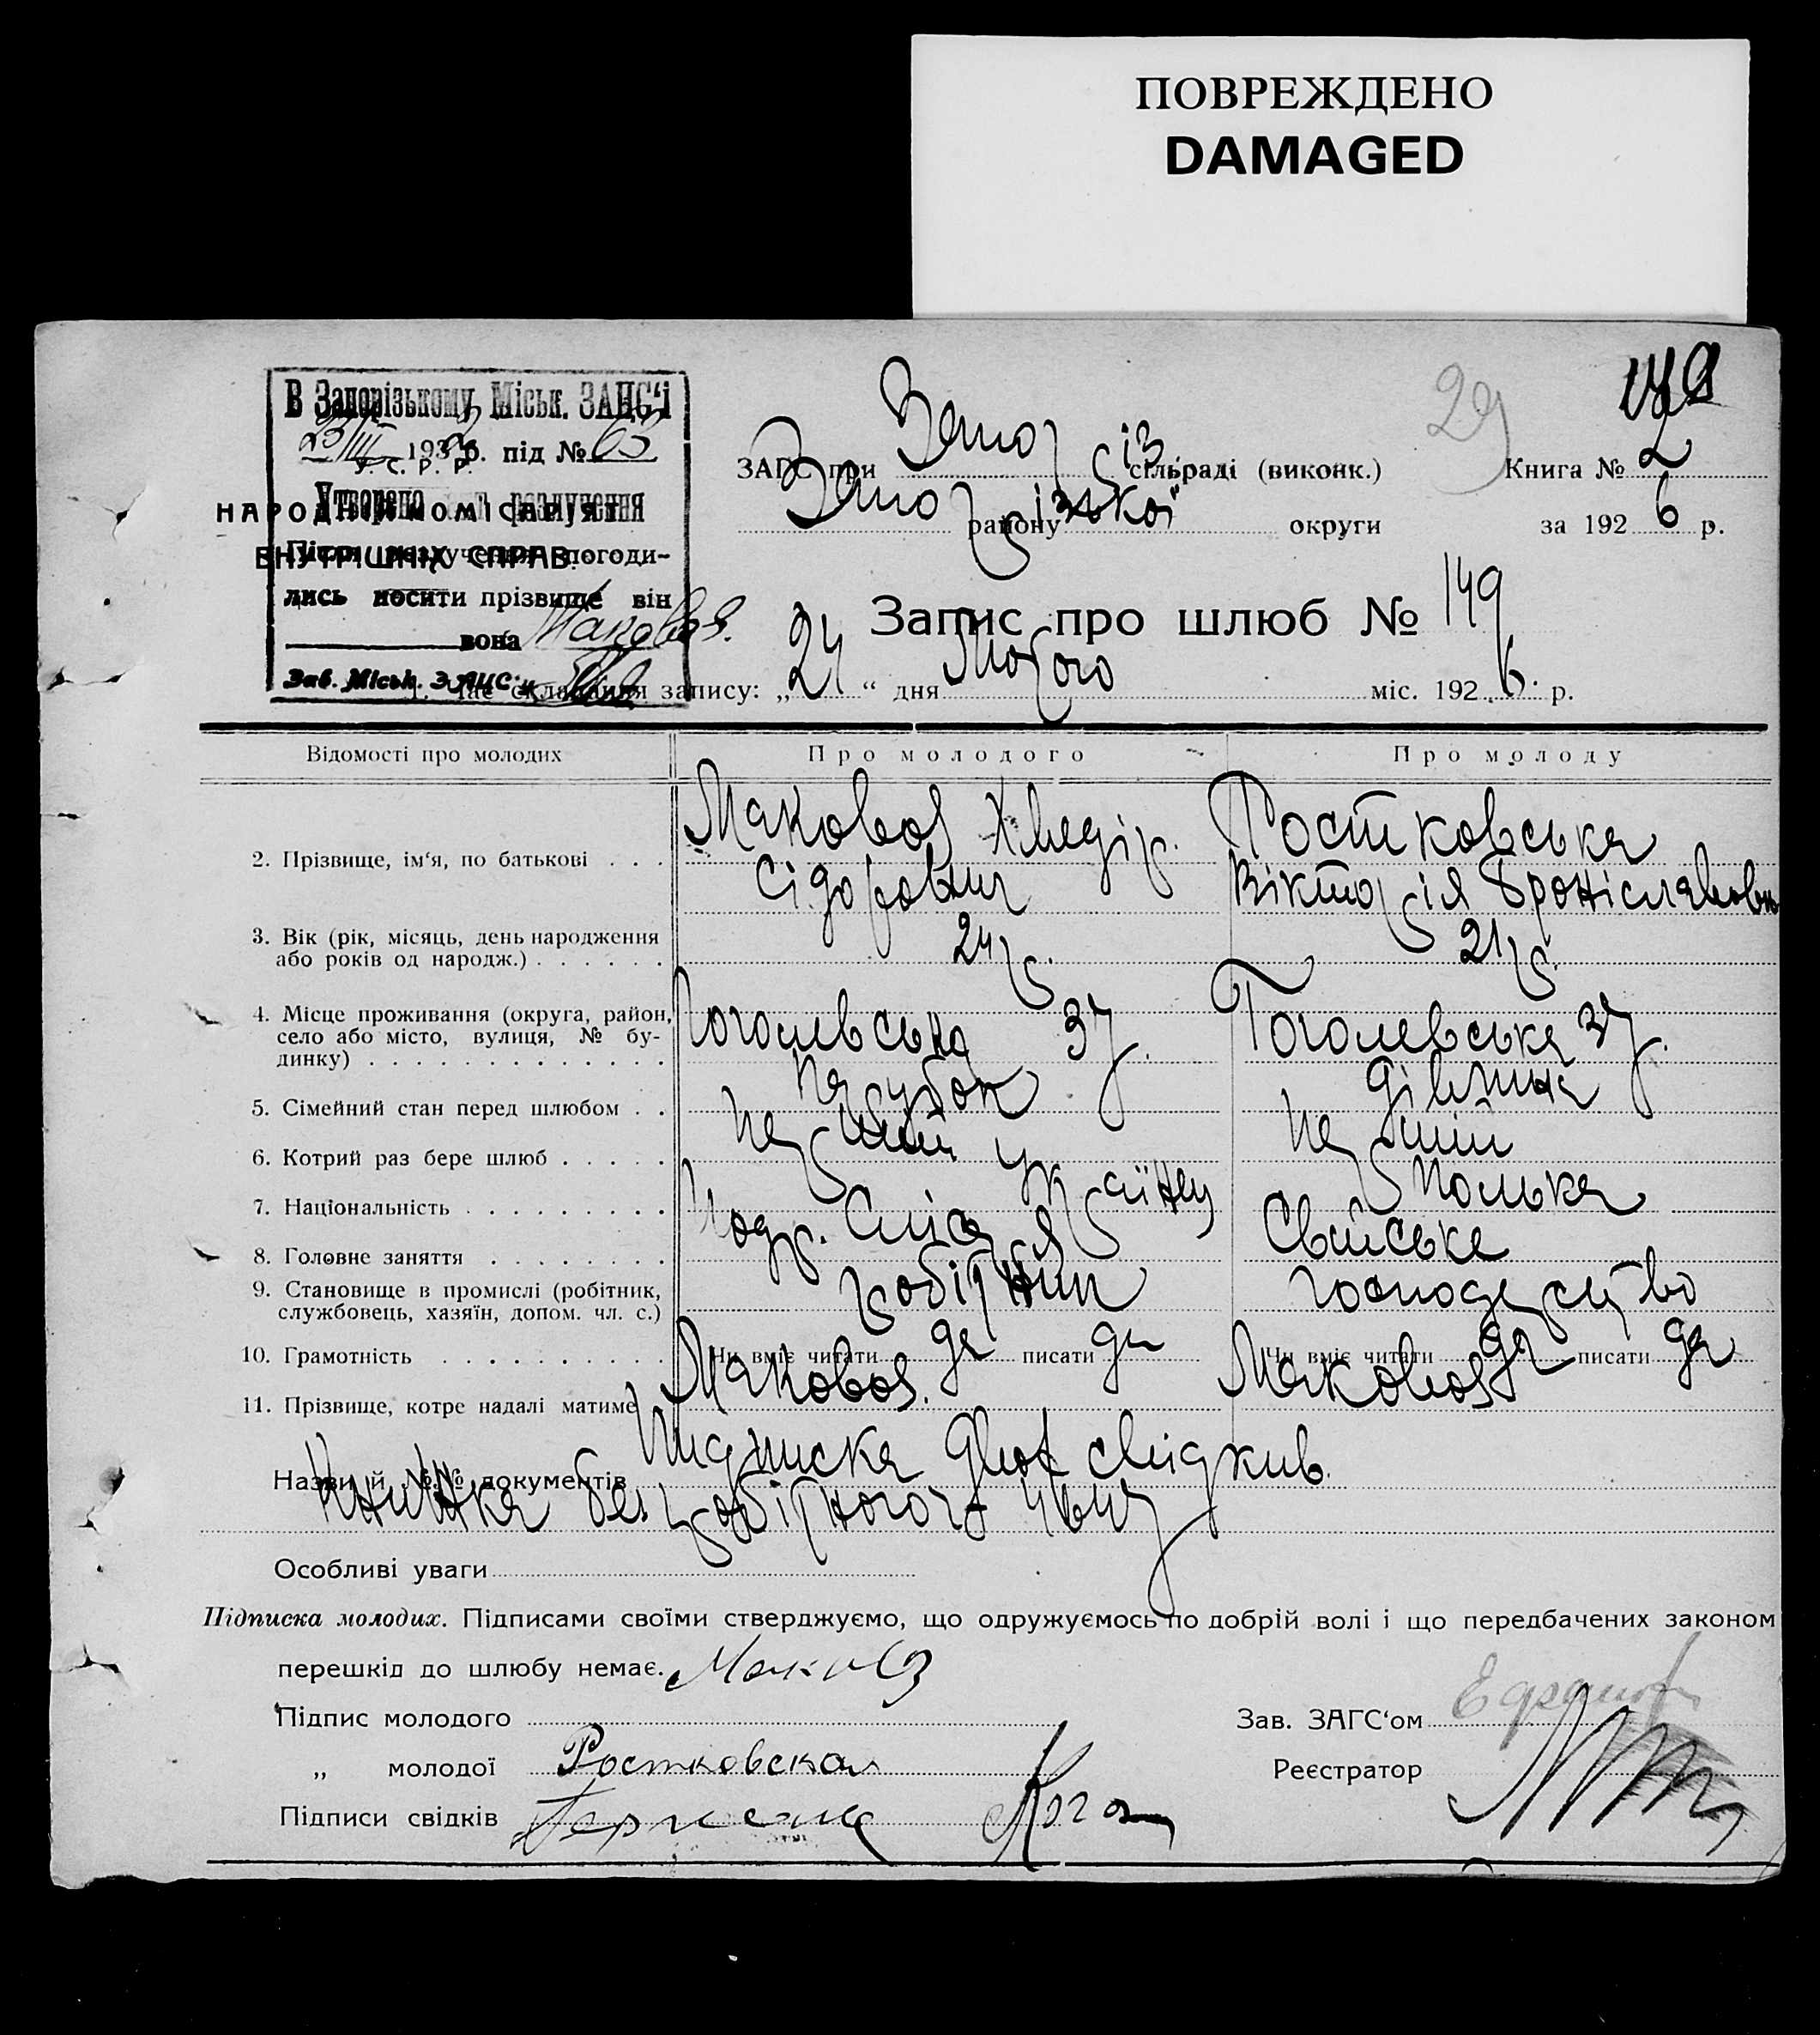 ПОВРЕЖДЕНО
DAMAGED
В Запорізькому Міськ. ЗАПС‘і
23/III 193 р. під № 63
У. С. Р. Р.
НАРОДНІЙ КОМІСАРІЯТ
ВНУТРІШНІХ СПРАВ.
Утворено розлучення
Після розлучення погоди-
лись носити прізвище він
вона Маковоз.
Зав. Міськ. ЗАПС‘у
29
149
ЗАГС при Запоріз сільраді (виконк.) Книга № 2
Запорізької району округи за 192 6 р.
Запис про шлюб № 149
1. Час складання запису: „ 24 “ дня Лютого міс. 192 6 р.
Відомості про молодих Про молодого Про молоду
2. Прізвище, ім‘я, по батькові Маковоз Хведір Ростковська
Сідорович Вікторія Броніславовн
3. Вік (рік, місяць, день народження
або років од народж.) 24 р. 21 р.
4. Місце проживання (округа, район,
село або місто, вулиця, № бу-
динку) Гоголевська 37. Гоголевська 37.
5. Сімейний стан перед шлюбом парубок дівчина
6. Котрий раз бере шлюб перший перший
7. Національність українец полька
8. Головне заняття Свійське
9. Становище в промислі (робітник,
службовець, хазяїн, допом. чл. с.) робітник господарство
10. Грамотність Чи вміє читати да писати да Чи вміє читати да писати да
11. Прізвище, котре надалі матиме Маковоз. Маковоз
Назви й №№ документів Підписка двох свідків.
Книжка безробітного
Особливі уваги
Підписка молодих. Підписами своїми стверджуємо, що одружуємось по добрій волі і що передбачених законом
перешкід до шлюбу немає.
Підпис молодого Маковоз
„ молодої Ростковская
Підписи свідків
Зав. ЗАГС‘ом
Реєстратор